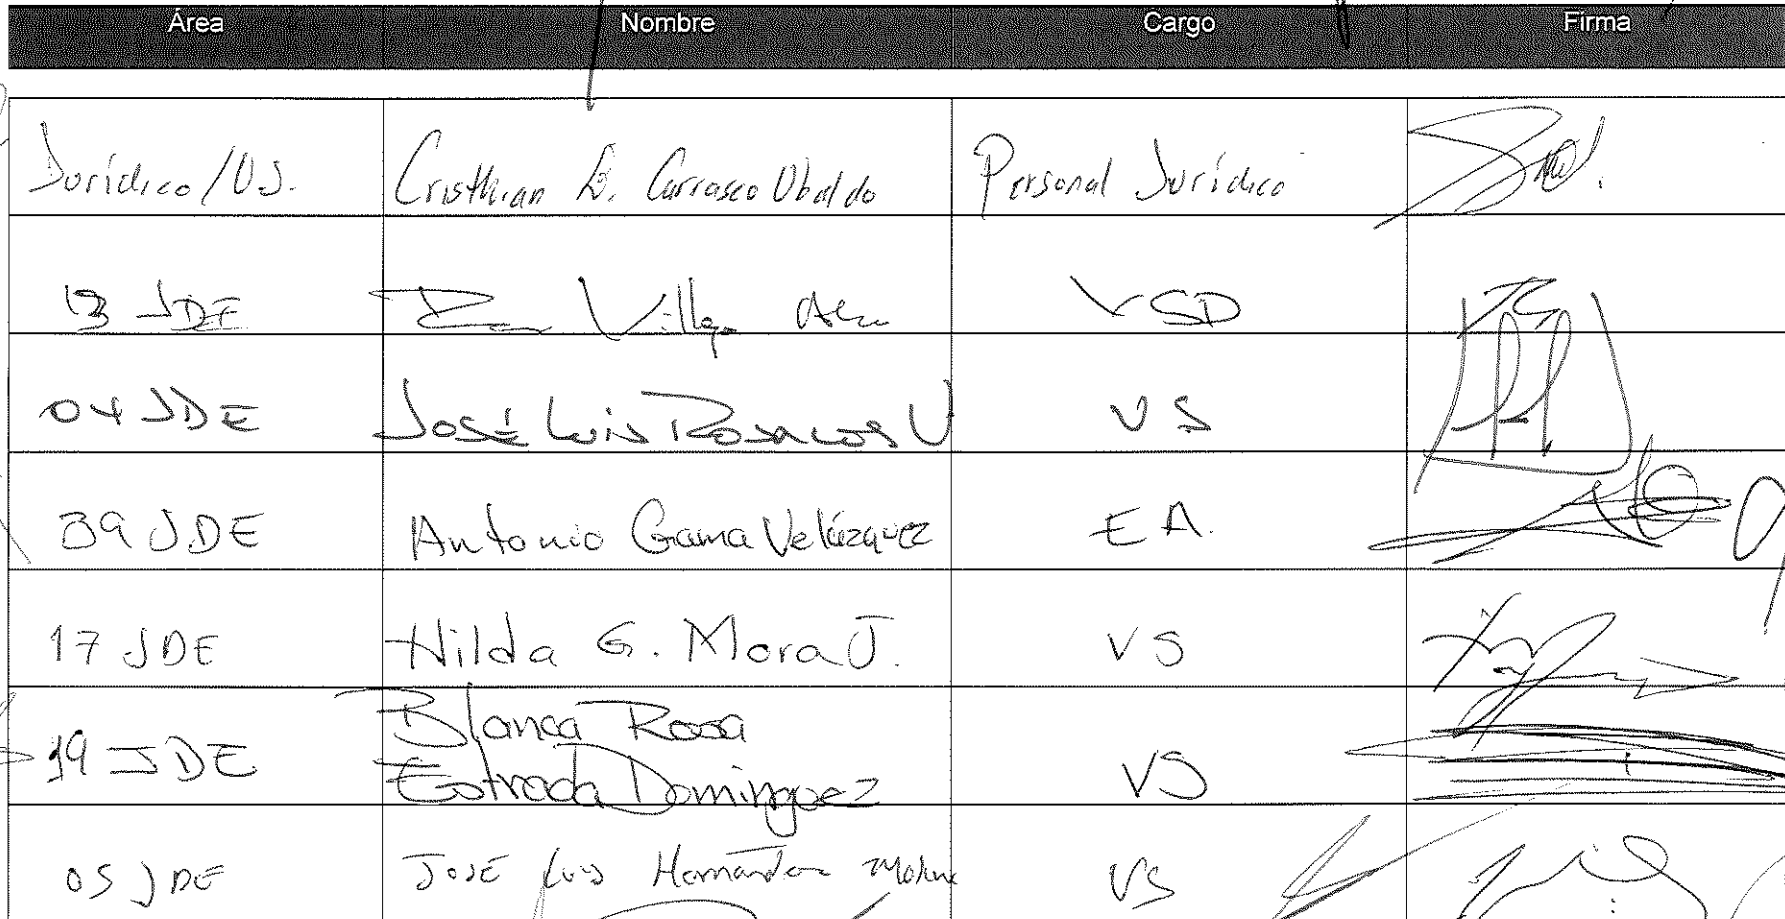 Área Nombre Cargo Firma
Jurídico/VS. Cristhian D. Carrasco Ubaldo Personal Jurídico
13 JDE Villega VSD
04 JDE José Luis Rosacos V VS
39 JDE Antonio Gama Velázquez EA.
17 JDE Hilda G. Mora J. VS
Blanca Rosa
19 JDE Estrada Dominguez VS
05 JDE José Luis Hernández VS